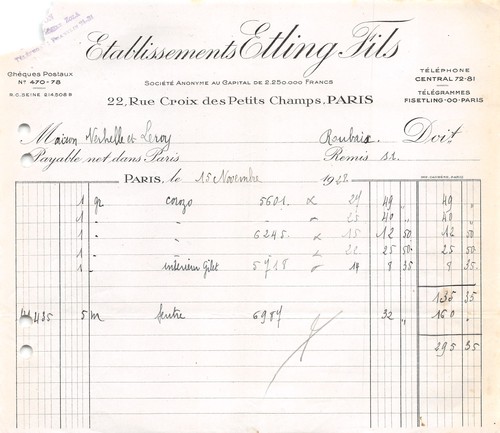 Etablissements Etling Fils
Société Anonyme au Capital de 2.250.000 Francs
Chèques Postaux
No 470-78
R.C. SEINE 214.508 B
TÉLÉPHONE
CENTRAL 72-81
TÉLÉGRAMMES
FISETLING-OO-PARIS
22, Rue Croix des Petits Champs, PARIS
Maison Verhelle et Leroy Roubaix. Doit
Payable net dans Paris Remis s/.
PARIS, le 15 Novembre 192
1 gr corozo 5601. 24 49 " 49 "
1 " " 25 40 " 40 "
1 " " 6245. 15 12 50 12 50
1 " " 22 25 50 25 50
1 " intérieur Gilet 5718 14 8 35 8 35
135 35
435 5 m feutre 6987 32 " 160 "
295 35